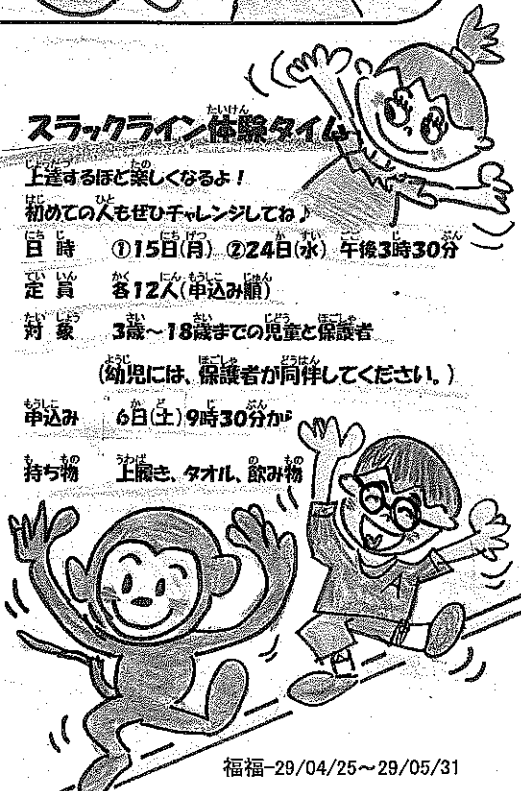 スラックライン体験タイム
上達するほど楽しくなるよ!
初めての人もぜひチャレンジしてね♪
日時 ①15日(月) ②24日(水) 午後3時30分
定員 各12人(申込み順)
対象 3歳~18歳までの児童と保護者
(幼児には、保護者が同伴してください。)
申込み 6日(土)9時30分か
持ち物 上履き、タオル、飲み物
A
福福-29/04/25~29/05/31